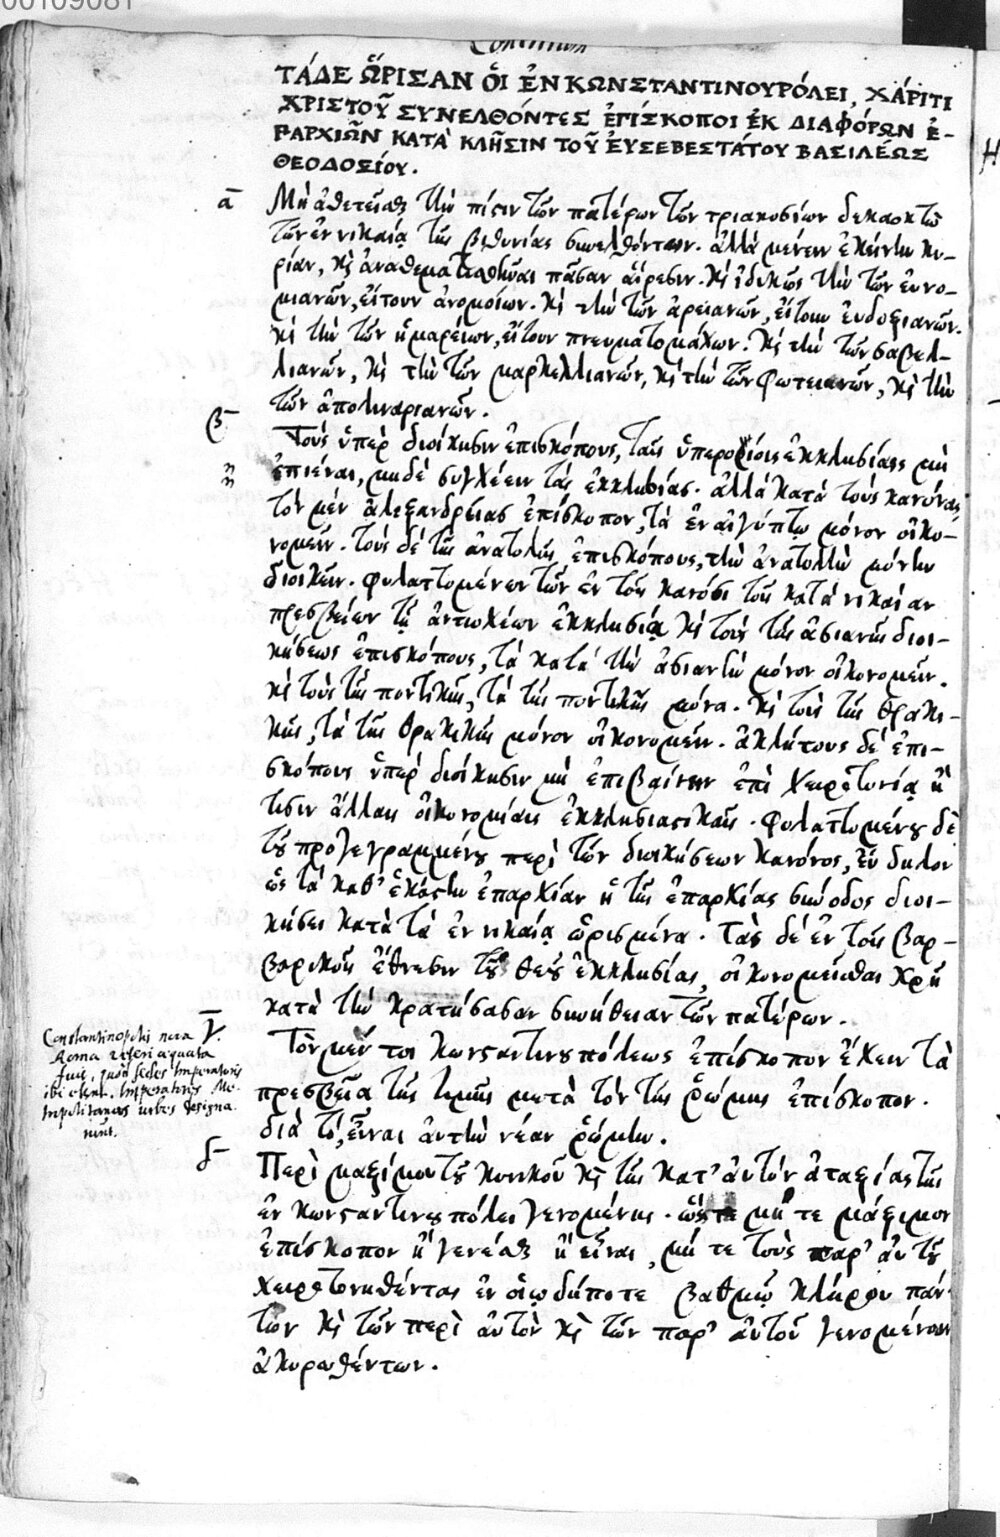 00109081
ΤΆΔΕ ὭΡΙΣΑΝ ΟἹ ἘΝ ΚΩΝΣΤΑΝΤΙΝΟΥΠΌΛΕΙ, ΧΆΡΙΤΙ
ΧΡΙΣΤΟΥ͂ ΣΥΝΕΛΘΌΝΤΕΣ ἘΠΊΣΚΟΠΟΙ ἘΚ ΔΙΑΦΌΡΩΝ Ἐ-
ΠΑΡΧΙΩ͂Ν ΚΑΤᾺ ΚΛΗ͂ΣΙΝ ΤΟΥ͂ ἘΥΣΕΒΕΣΤΆΤΟΥ ΒΑΣΙΛΈΩΣ
ΘΕΟΔΟΣΊΟΥ.
α Μὴ ἀθετεῖσθαι τὴν πίστιν τῶν πατέρων τῶν τριακοσίων δεκαοκτὼ
τῶν ἐν νικαίᾳ τῆς βιθυνίας συνελθόντων. ἀλλὰ μένειν ἐκείνην κυ-
ρίαν, κὶ ἀναθεματισθῆναι πᾶσαν αἵρεσιν. κὶ ἰδικῶς τὴν τῶν εὐνο-
μιανῶν, εἴτουν ἀνομοίων. κὶ τὴν τῶν ἀρειανῶν, εἴτουν ἐυδοξιανῶν.
κὶ τὴν τῶν ἡμαρείων, εἴτουν πνευματομάχων. κὶ τὴν τῶν σαβελ-
λιανῶν, κὶ τὴν τῶν μαρκελλιανῶν, κὶ τὴν τῶν φωτεινιανῶν, κὶ τὴν
τῶν ἀπολιναριανῶν.
β Τοὺς ὑπὲρ διοίκησιν ἐπισκόπους, ταῖς ὑπερορίοις ἐκκλησίαις μὴ
ἐπιέναι, μηδὲ συγχέειν τὰς ἐκκλησίας. ἀλλὰ κατὰ τοὺς κανόνας
τὸν μὲν ἀλεξανδρείας ἐπίσκοπον, τὰ ἐν αἰγύπτῳ μόνον οἰκο-
νομεῖν. τοὺς δὲ τῆς ἀνατολῆς ἐπισκόπους, τὴν ἀνατολὴν μόνην
διοικεῖν. φυλαττομένων τῶν ἐν τοῖς κανόσι τοῖς κατὰ νικαίαν
πρεσβείων τῇ ἀντιοχέων ἐκκλησίᾳ κὶ τοὺς τῆς ἀσιανῆς διοι-
κήσεως ἐπισκόπους, τὰ κατὰ τὴν ἀσιανὴν μόνον οἰκονομεῖν.
κὶ τοὺς τῆς ποντικῆς, τὰ τῆς ποντικῆς μόνα. κὶ τοὺς τῆς θρακι-
κῆς, τὰ τῆς θρακικῆς μόνον οἰκονομεῖν. ἀκλήτους δὲ ἐπι-
σκόπους ὑπὲρ διοίκησιν μὴ ἐπιβαίνειν ἐπὶ χειροτονίᾳ ἢ
τισιν ἄλλαις οἰκονομίαις ἐκκλησιαστικαῖς. φυλαττομένου δὲ
τοῦ προγεγραμμένου περὶ τῶν διοικήσεων κανόνος, εὔδηλον
ὡς τὰ καθ' ἑκάστην ἐπαρχίαν ἡ τῆς ἐπαρχίας σύνοδος διοι-
κήσει κατὰ τὰ ἐν νικαίᾳ ὡρισμένα. Τὰς δὲ ἐν τοῖς βαρ-
βαρικοῖς ἔθνεσιν τοῦ θεοῦ ἐκκλησίας, οἰκονομεῖσθαι χρὴ
κατὰ τὴν κρατήσασαν συνήθειαν τῶν πατέρων.
γ. Τὸν μέν τοι κωνσταντινουπόλεως ἐπίσκοπον ἔχειν τὰ
πρεσβεῖα τῆς τιμῆς μετὰ τὸν τῆς ῥώμης ἐπίσκοπον.
διὰ τό, εἶναι ἀυτὴν νέαν ῥώμην.
Constantinopolis nova
Roma veteri aequata
fuit, quod sedes Imperatoris
ibi esset. Imperatores Me-
tropolitanas urbes designa-
runt.
δ Περὶ μαξίμου τοῦ κυνικοῦ κὶ τῆς κατ' ἀυτὸν ἀταξίας τῆς
ἐν κωνσταντινουπόλει γενομένης. ὥστε μή τε μάξιμον
ἐπίσκοπον ἢ γενέσθαι ἢ εἶναι, μή τε τοὺς παρ' ἀυτοῦ
χειροτονηθέντας ἐν οἱῳδήποτε βαθμῷ κλήρου πάν-
των κὶ τῶν περὶ ἀυτὸν κὶ τῶν παρ' ἀυτοῦ γενομένων
ἀκυρωθέντων.